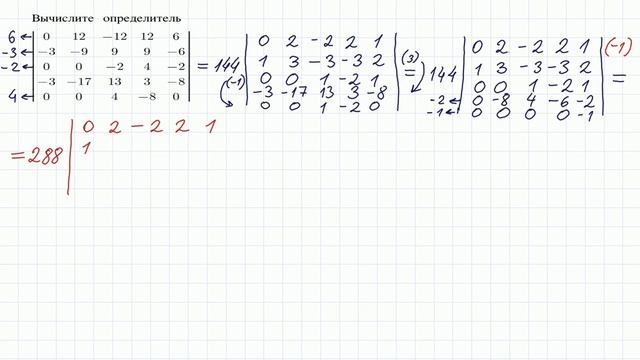 Вычислите определитель
6 ← | 0 12 −12 12 6 |
-3 ← | −3 −9 9 9 −6 |
-2 ← | 0 0 −2 4 −2 |
| −3 −17 13 3 −8 |
4 ← | 0 0 4 −8 0 |
= 144
(-1)
| 0 2 -2 2 1 |
| 1 3 -3 -3 2 |
| 0 0 1 -2 1 |
| -3 -17 13 3 -8 |
| 0 0 1 -2 0 |
(3)
= 144
| 0 2 -2 2 1 |
| 1 3 -3 -3 2 |
| 0 0 1 -2 1 |
-2 ← | 0 -8 4 -6 -2 |
-1 ← | 0 0 0 0 -1 |
(-1)
=
= 288 | 0 2 -2 2 1
1